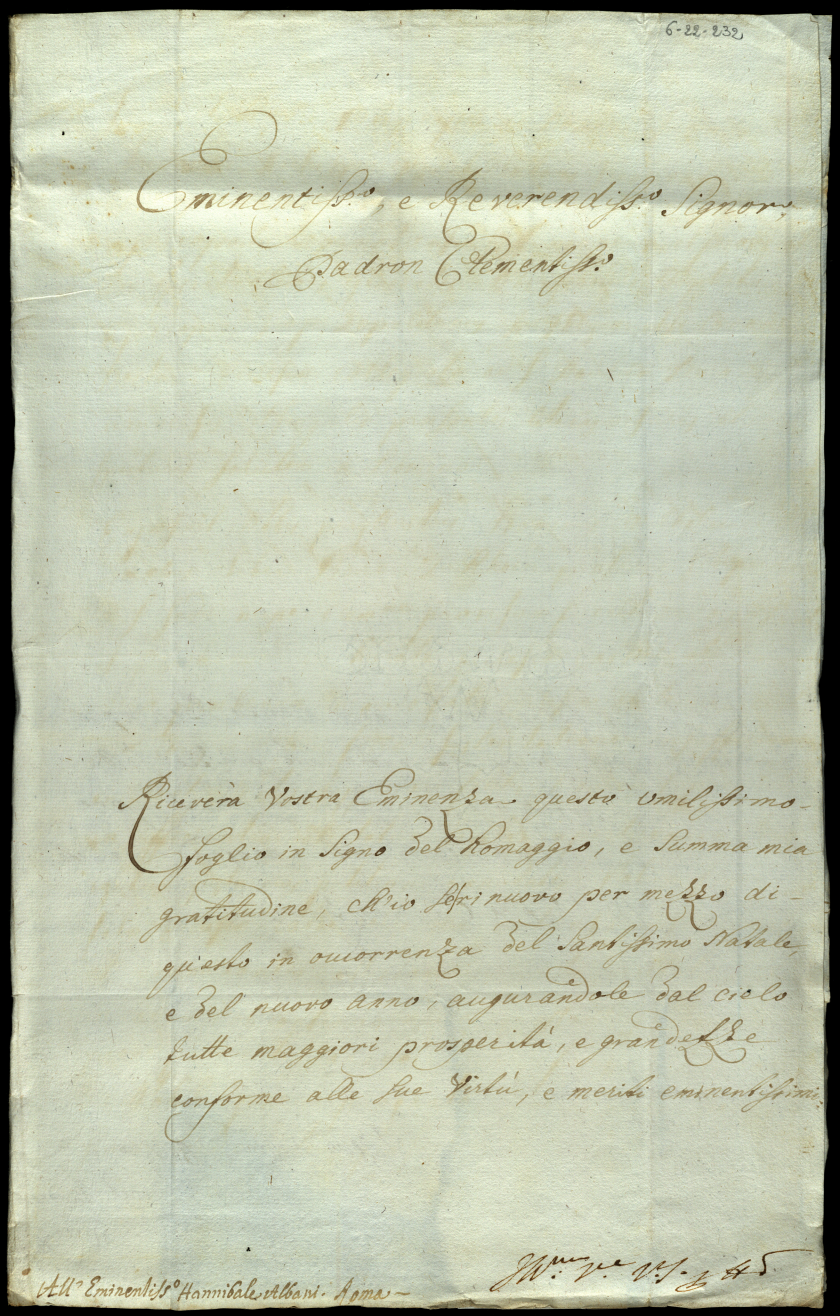 6-22-232
Eminentiss.o, e Reverendiss.o Signor,
Padron Clementiss.o
Riceverà Vostra Eminenza questo umilissimo
foglio in Signo del homaggio, e Summa mia
gratitudine, ch'io rinuovo per mezzo di
questo in ouorrenza del Santissimo Natale,
e del nuovo anno, augurandole dal cielo
tutte maggiori prosperità, e grandezze
conforme alle sue Virtù, e meriti eminentissimi.
All' Eminentiss.o Hannibale Albani. Roma